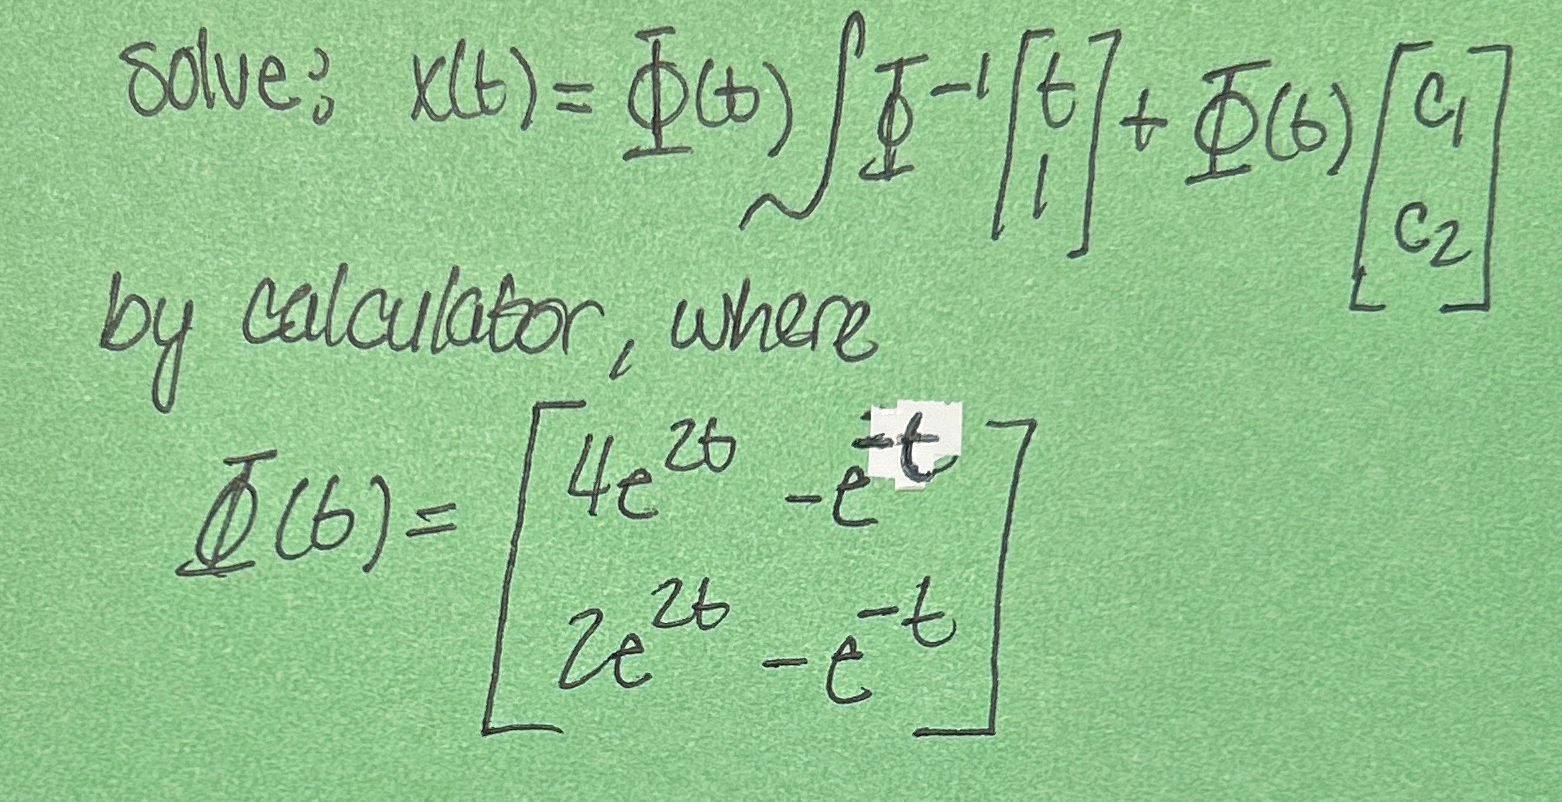 solve: x(t) = Φ(t) ∫ Φ⁻¹ [t; 1] + Φ(t) [c₁; c₂]
by calculator, where
Φ(t) = [4e^{2t} -e^{-t}; 2e^{2t} -e^{-t}]